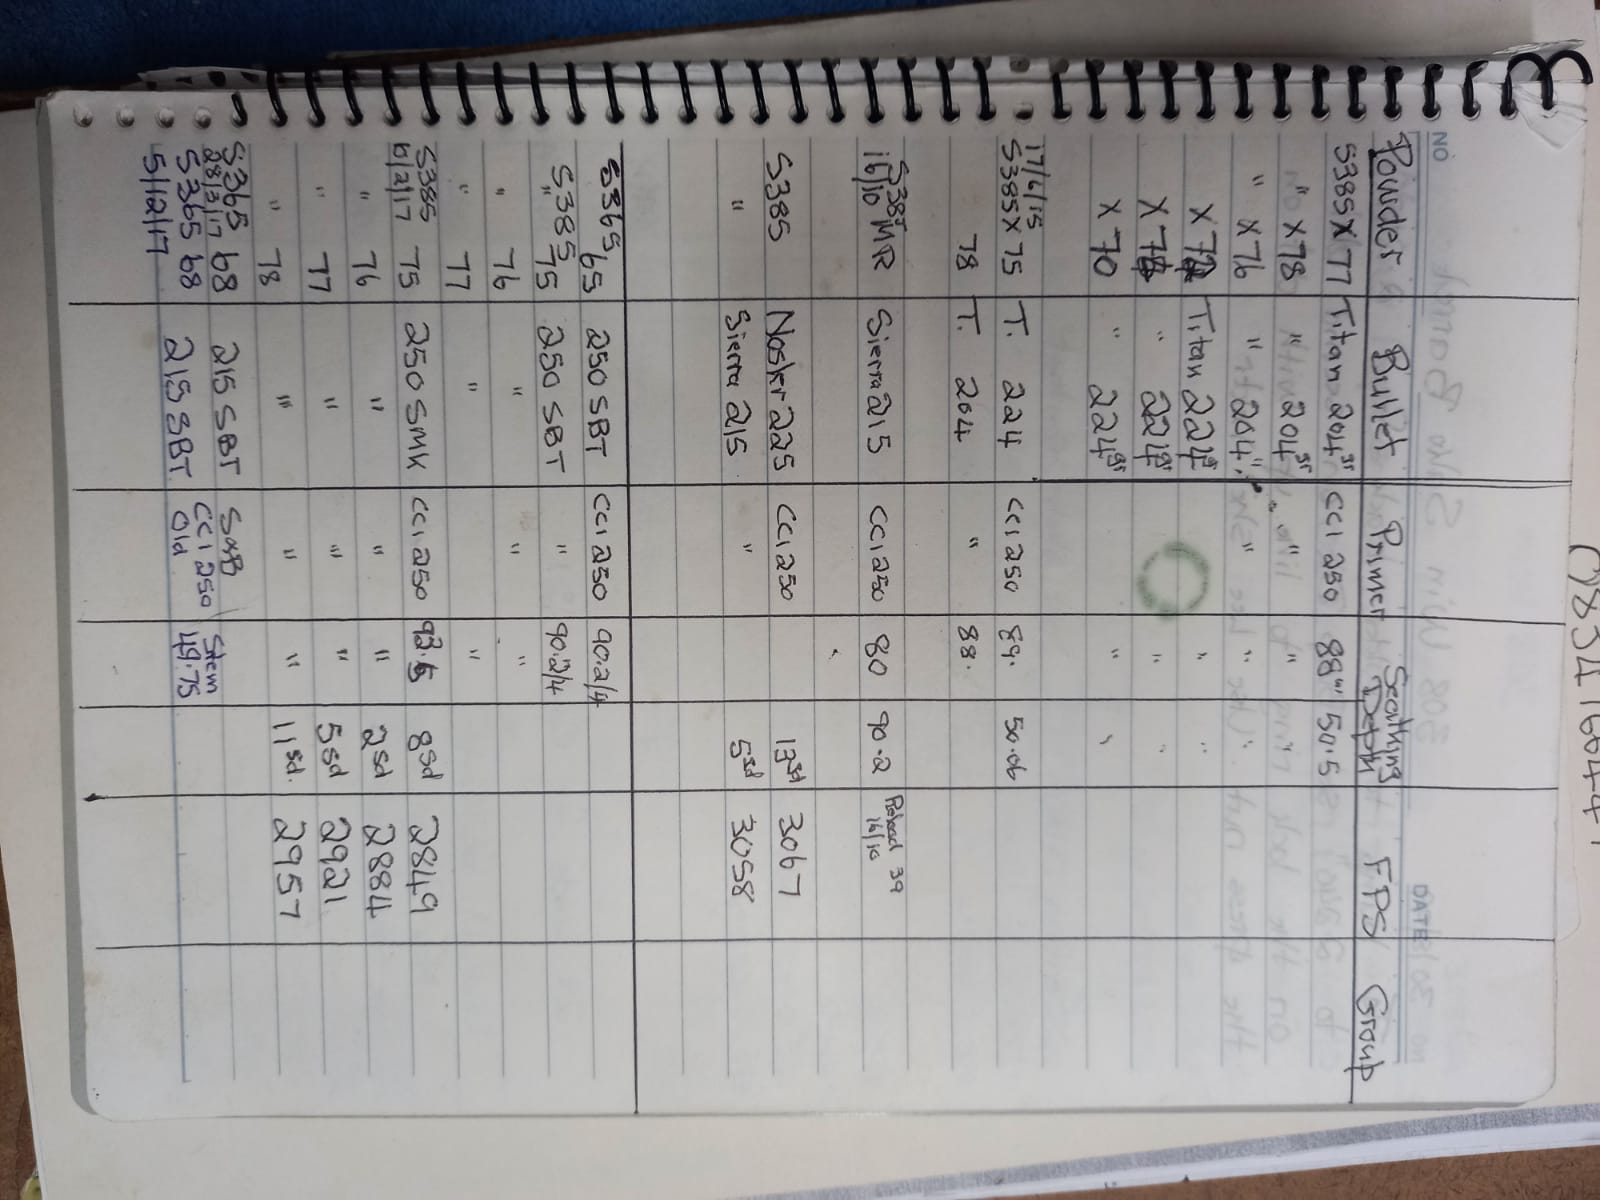 NO
DATE
Powder & Bullet Primer Seathing Depth FPS Group
S385 X 77 Titan 204gr CCI 250 88"' 50.5
" X 78 " 204gr " "
" X 76 " 204 " "
X 72 Titan 224gr " "
X 224gr " "
X 70 " 224gr " "
17/6/15
S385 X 75 T. 224 CCI 250 89. 50.06
78 T. 204 " 88.
S385
16/10 MR Sierra 215 CCI 250 80 90.2 Reload 39
16/10
S385 Nosler 225 CCI 250 13sd 3067
" Sierra 215 " 5sd 3058
S365 65 250 SBT CCI 250 90.2/4
S385 75 250 SBT " 90.2/4
" 76 " " "
" 77 " "
S385 75 250 SMK CCI 250 93.5 8sd 2849
6/2/17
" 76 " " " 2sd 2884
" 77 " " " 5sd 2921
" 78 " " " 11sd. 2957
S365 68 215 SBT S&B Stem
28/3/17
S365 68 215 SBT CCI 250 49.75
5/12/17 Old